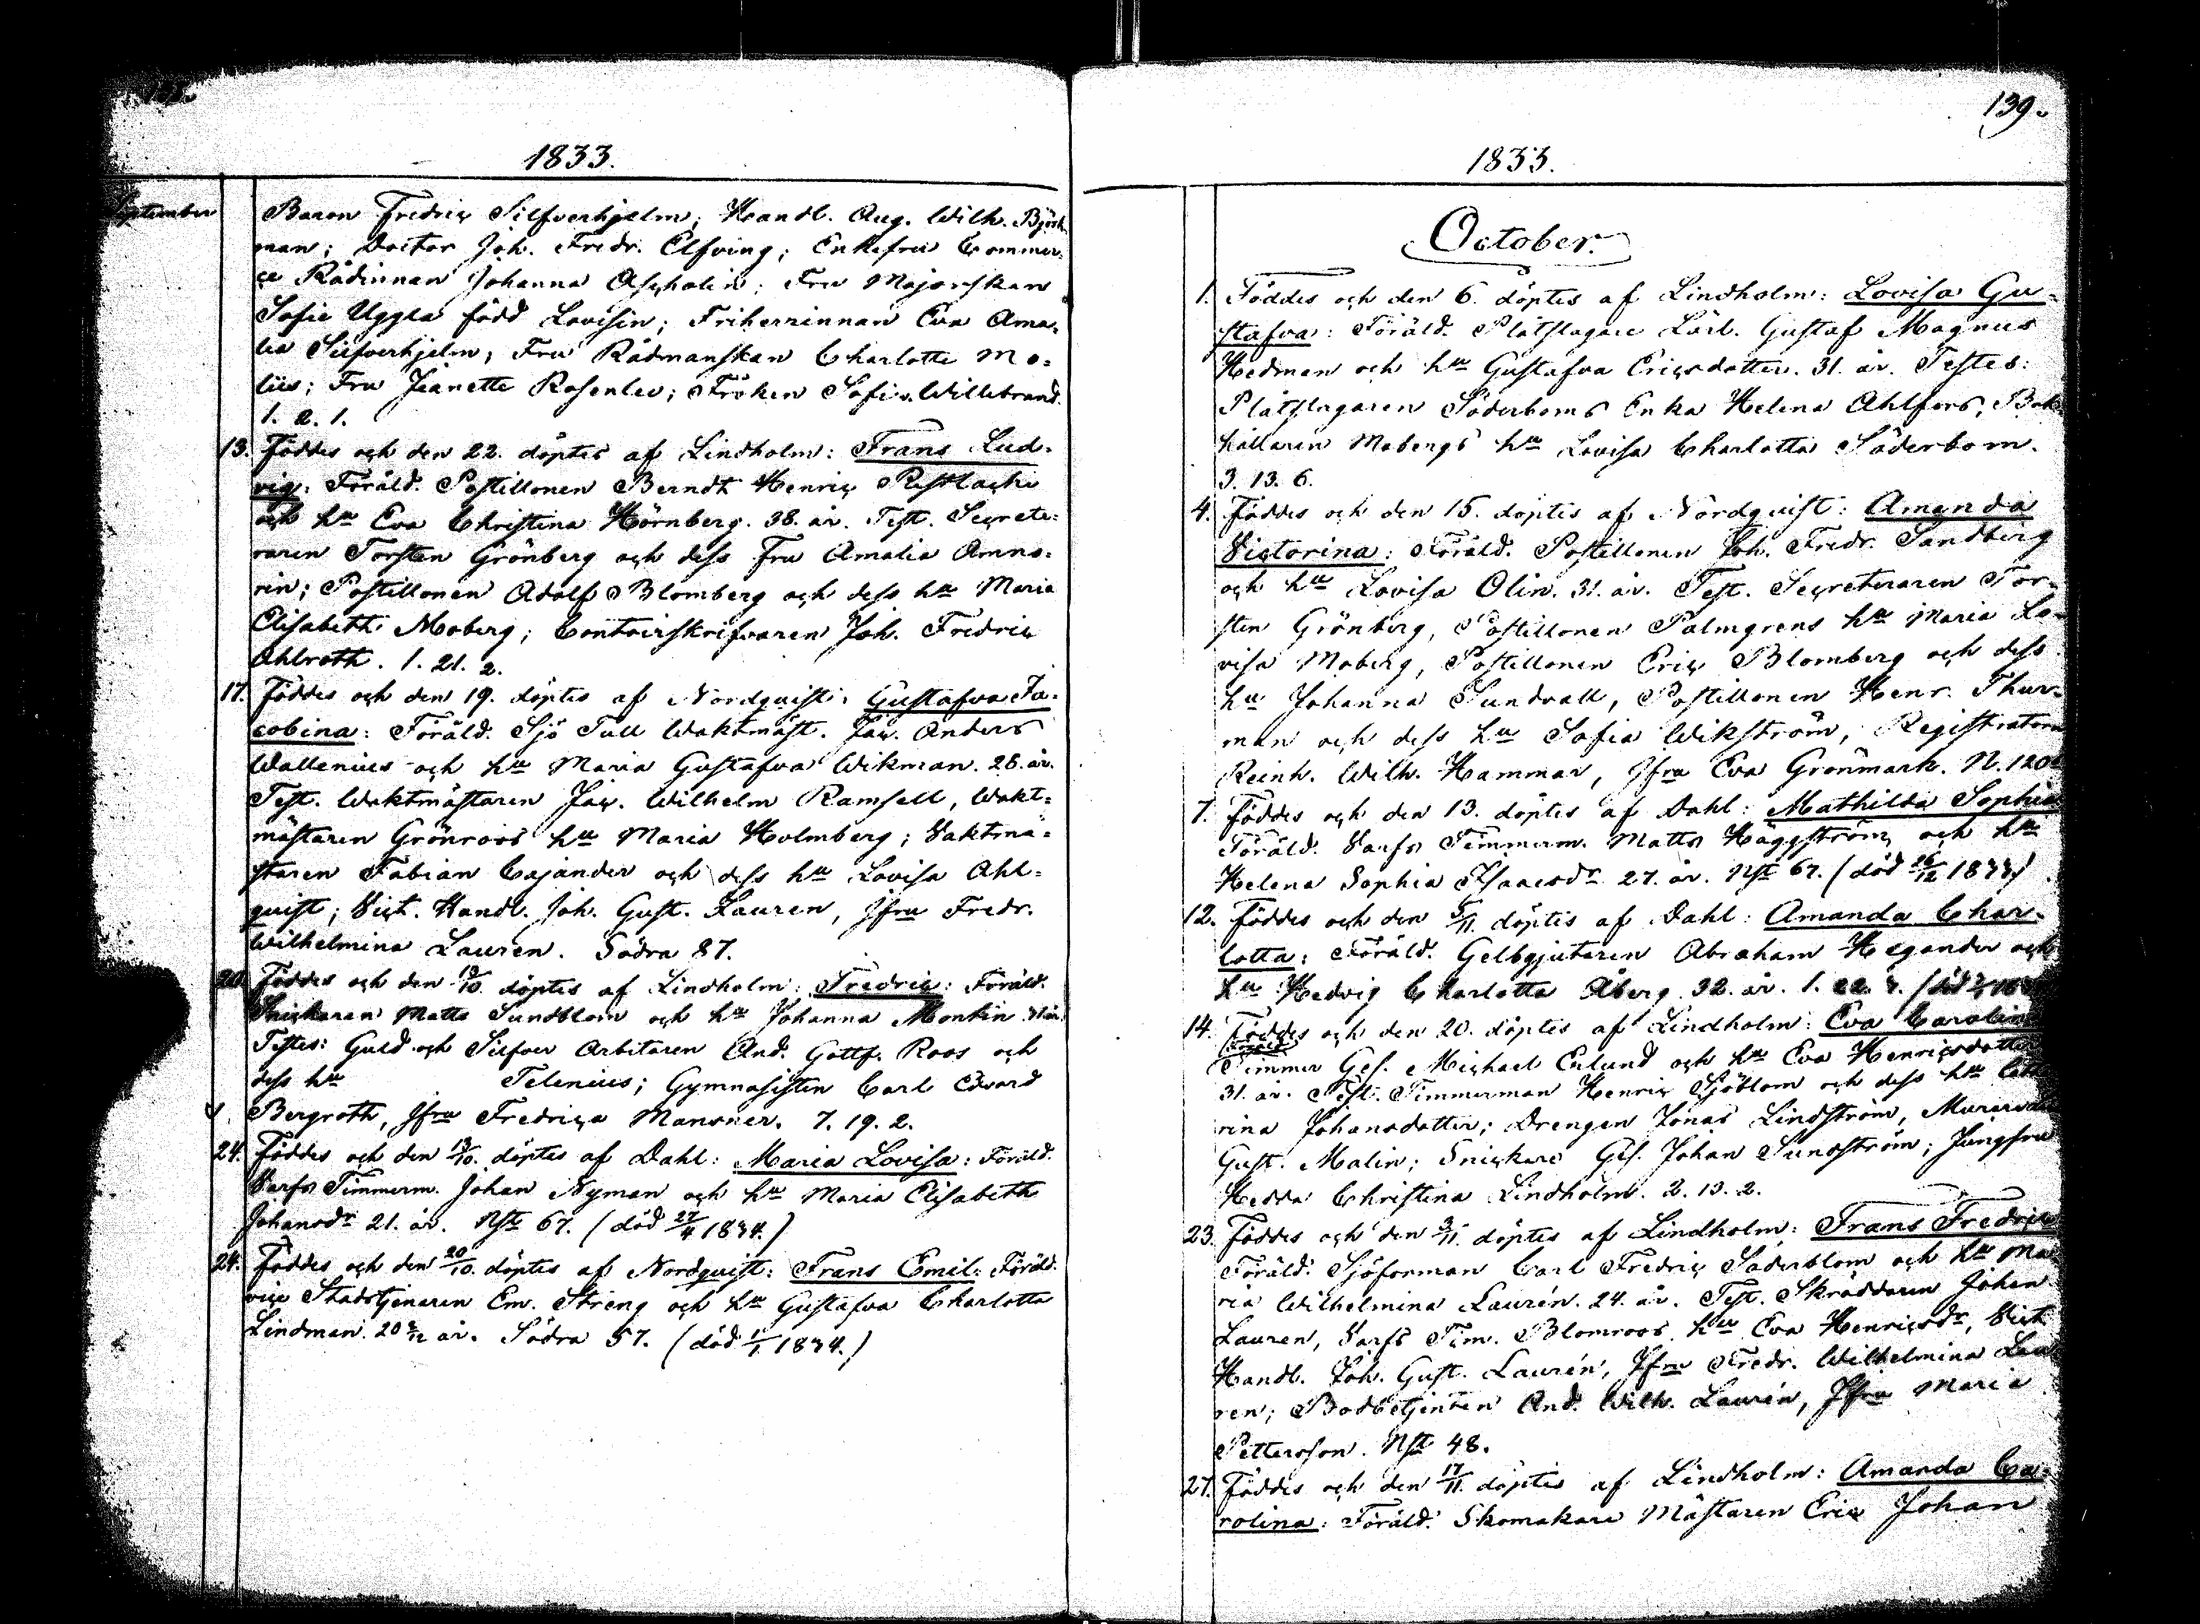 138.
1833.
September
Baron Fredric Silfverhjelm; Handl. Aug. Wilh. Björk
man; Doctor Joh. Fredr. Elfving; Enkefru Commer-
ce Rådinnan Johanna Aschalin; Fru Majorskan
Sofie Uggla född Lovisin; Friherrinnan Eva Ama-
lia Silfverhjelm; Fru Rådmanskan Charlotte Mo-
liis; Fru Jeanette Rosenlev; Fröken Sofi v. Willebrand.
1. 2. 1.
13. Föddes och den 22. döptes af Lindholm: Frans Lud-
vig: Föräld. Postillonen Berndt Henric
och hu Eva Christina Hörnberg. 38. år. Test. Secrete-
raren Torsten Grönberg och dess fru Amalia Amno-
rin; Postillonen Adolf Blomberg och dess hu Maria
Elisabeth Moberg; Contoirskrifvaren Joh. Fredric
Ahlroth. 1. 21. 2.
17. Föddes och den 19. döptes af Nordquist: Gustafva Ja-
cobina: Föräld. Sjö Tull Waktmäst. Jac. Anders
Wallenius och hu Maria Gustafva Wikman. 28. år.
Test. Waktmästaren Jac. Wilhelm Ramsell, Wakt-
mästaren Grönroos hu Maria Holmberg; Vaktmä-
staren Fabian Cajander och dess hu Lovisa Ahl-
quist; Vict. Handl. Joh. Gust. Lauren, Jfru Fredr.
Wilhelmina Lauren. Södra 87.
20. Föddes och den 13/10. döptes af Lindholm: Fredric: Föräld.
Snickaren Matts Sundblom och hu Johanna Montin
Testes: Guld och Silfver Arbetaren And. Gottf. Roos och
dess hu Telenius; Gymnasisten Carl Edvard
Bergroth, Jfru Fredrica Mansner. 7. 19. 2.
24. Föddes och den 13/10. döptes af Dahl: Maria Lovisa: Föräld.
Varfs Timmerm. Johan Nyman och hu Maria Elisabeth
Johansdr 21. år. Nst 67. (död 27/4 1834.)
24. Föddes och den 20/10. döptes af Nordquist: Frans Emil: Föräld.
vice Stadstjenaren Em. Streng och hu Gustafva Charlotta
Lindman. 20 år. Södra 57. (död 1/1 1834.)
139.
1833.
October.
1. Föddes och den 6. döptes af Lindholm: Lovisa Gu-
stafva: Föräld. Plåtslagare Lärl. Gustaf Magnus
Hedman och hu Gustafva Ericsdotter. 31. år. Testes:
Plåtslagaren Söderboms Enka Helena Ahlfors, Bok-
hållaren Mobergs hu Lovisa Charlotta Söderbom.
3. 13. 6.
4. Föddes och den 15. döptes af Nordquist: Amanda
Victorina: Föräld. Postillonen Joh. Fredr. Sandberg
och hu Lovisa Olin. 31. år. Test. Secreteraren Tor-
sten Grönberg, Postillonen Palmgrens hu Maria Lo-
visa Moberg, Postillonen Eric Blomberg och dess
hu Johanna Sundvall, Postillonen Henr. Thur-
man och dess hu Sofia Wikström, Registratorn
Reinh. Wilh. Hammar, Jfru Eva Grönmark. N. 120
7. Föddes och den 13. döptes af Dahl: Mathilda Sophia
Föräld. Varfs Timmerm. Matts Häggström, och hu
Helena Sophia Isaacsdr 27. år. Nst 67. (död 26/12 1833)
12. Föddes och den 5/11. döptes af Dahl: Amanda Char-
lotta: Föräld. Gelbgjutaren Abraham Hegander och
hu Hedvig Charlotta Åberg 32. år. 1. 22.
14. Föddes och den 20. döptes af Lindholm: Eva Carolina
Timmer Ges. Michael Enlund och hu Eva Henricsdotter
31. år. Test. Timmerman Henric Sjöblom och dess hu Catha
rina Johansdotter; Drengen Jonas Lindström,
Gust. Malin; Snickare Ges. Johan Sundström; Jungfru
Hedda Christina Lindholm. 2. 13. 2.
23. Föddes och den 3/11. döptes af Lindholm: Frans Fredric
Föräld. Sjöforman Carl Fredric Söderblom och hu Ma
ria Wilhelmina Laurén. 24. år. Test. Skräddaren Johan
Lauren, Varfs Tim. Blomroos hu Eva Henricsdr, Vict.
Handl. Joh. Gust. Laurén, Jfru Fredr. Wilhelmina Lau
ren; Bodbetjenten And. Wilh. Laurén, Jfru Maria
Pettersson. Nst 48.
27. Föddes och den 17/11. döptes af Lindholm: Amanda Ca-
rolina: Föräld. Skomakare Mästaren Eric Johan